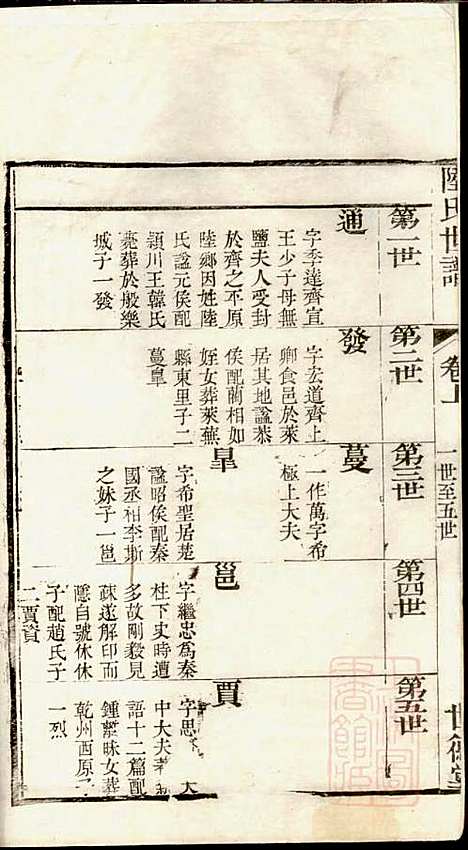 陸氏世譜
卷上
一世至五世
第一世
通
字季達齊宣
王少子母無
鹽夫人受封
於齊之平原
陸鄉因姓陸
氏諡元侯配
潁川王韓氏
薨葬於般樂
城子一發
第二世
發
字宏道齊上
卿食邑於萊
居其地諡恭
侯配藺相如
姪女葬萊蕪
縣東里子二
蔓皐
第三世
蔓
一作萬字希
極上大夫
皐
字希聖居楚
諡昭侯配秦
國丞相李斯
之妹子一邕
第四世
邕
字繼忠爲秦
柱下史時遭
多故剛毅見
疎遂解印而
隱自號休休
子配趙氏子
二賈資
第五世
賈
字思 大
中大夫著
語十二篇配
鍾離昧女葬
乾州西原子
一烈